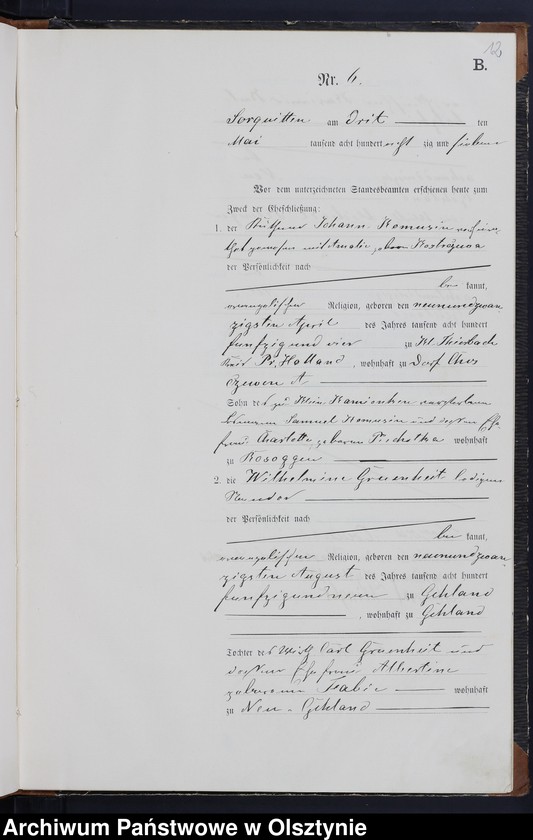 12
B.
Nr. 6.
Sorquitten am Drit ten
Mai tausend acht hundert acht zig und sieben
Vor dem unterzeichneten Standesbeamten erschienen heute zum
Zweck der Eheschließung:
1. der Johann Komussin
gewesen mit Amalie
der Persönlichkeit nach
be kannt,
evangelischer Religion, geboren den neunundzwan
zigsten April des Jahres tausend acht hundert
funfzig und vier zu Kl. Thierbach
Kreis Pr. Holland, wohnhaft zu Dorf Chos
czewen
Sohn des zu Klein Kamienken verstorbenen
Samuel Komussin und dessen Ehe
frau Charlotte, geborene wohnhaft
zu Rosoggen
2. die Wilhelmine Gruenheit ledigen
Standes
der Persönlichkeit nach
be kannt,
evangelischer Religion, geboren den neunundzwan
zigsten August des Jahres tausend acht hundert
funfzigundneun zu Gehland
, wohnhaft zu Gehland
Tochter des Wirth Carl Gruenheit und
dessen Ehefrau Albertine
geborene wohnhaft
zu Neu-Gehland
Archiwum Państwowe w Olsztynie